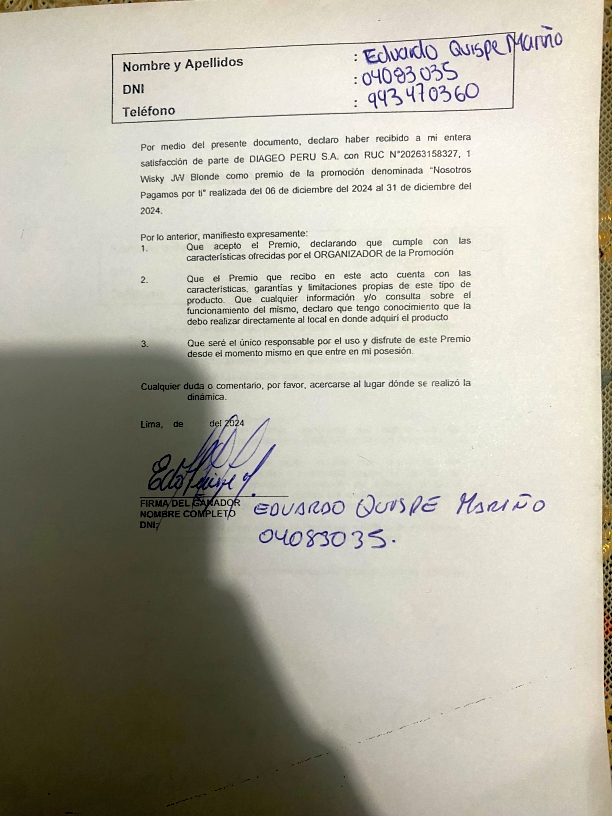 Nombre y Apellidos : Eduardo Quispe Mariño
DNI : 04083035
Teléfono : 993470360
Por medio del presente documento, declaro haber recibido a mi entera
satisfacción de parte de DIAGEO PERU S.A. con RUC N°20263158327, 1
Wisky JW Blonde como premio de la promoción denominada "Nosotros
Pagamos por ti" realizada del 06 de diciembre del 2024 al 31 de diciembre del
2024.
Por lo anterior, manifiesto expresamente:
1. Que acepto el Premio, declarando que cumple con las
características ofrecidas por el ORGANIZADOR de la Promoción
2. Que el Premio que recibo en este acto cuenta con las
características, garantías y limitaciones propias de este tipo de
producto. Que cualquier información y/o consulta sobre el
funcionamiento del mismo, declaro que tengo conocimiento que la
debo realizar directamente al local en donde adquirí el producto
3. Que seré el único responsable por el uso y disfrute de este Premio
desde el momento mismo en que entre en mi posesión.
Cualquier duda o comentario, por favor, acercarse al lugar dónde se realizó la
dinámica.
Lima, de del 2024
FIRMA DEL GANADOR
NOMBRE COMPLETO EDUARDO QUISPE MARIÑO
DNI: 04083035.